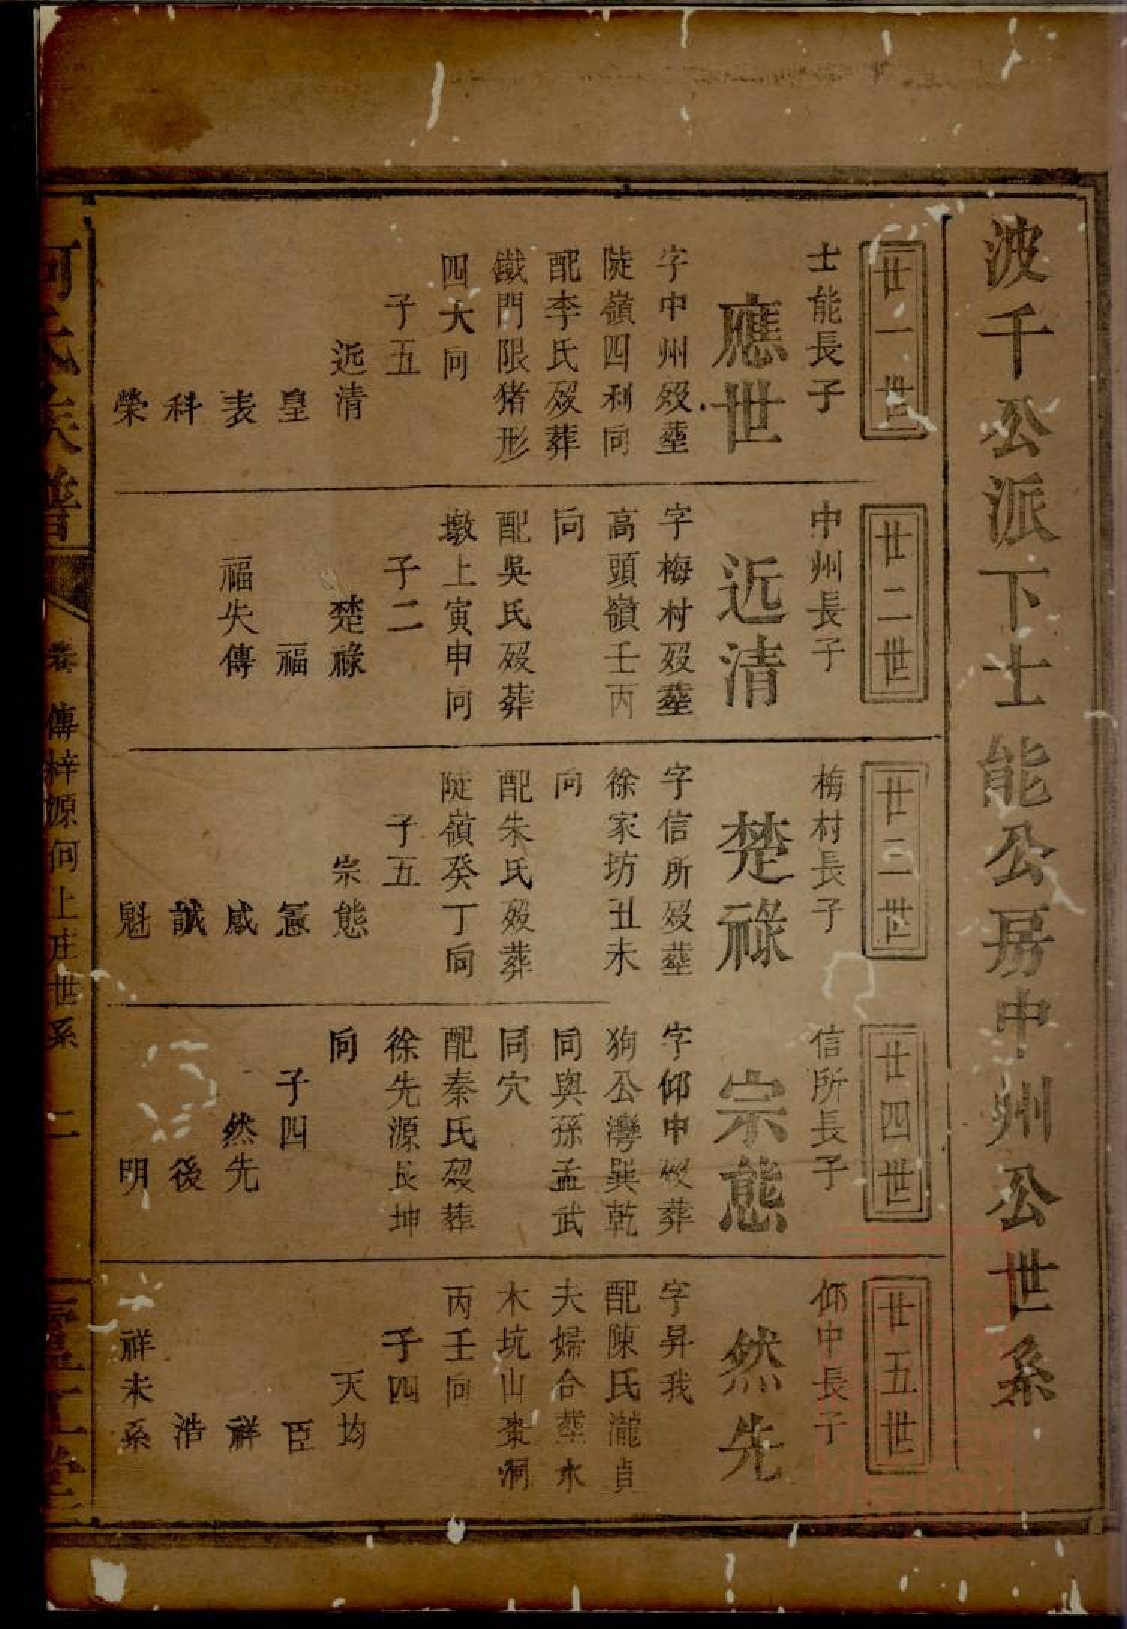 波千公派下士能公房中州公世系
廿一世
士能長子
應世
字中州歿塟
陡嶺四利向
配李氏歿葬
鐵門限猪形
四大向
子五
近清
皇
表
科
榮
廿二世
中州長子
近清
字梅村歿塟
高頭嶺壬丙
向
配吳氏歿葬
墩上寅申向
子二
楚祿
福
福失傳
廿三世
梅村長子
楚祿
字信所歿塟
徐家坊丑未
向
配朱氏歿葬
陡嶺癸丁向
子五
宗態
憲
感
誠
魁
廿四世
信所長子
宗態
字仰中歿葬
狗公灣巽乾
向與孫孟武
同穴
配秦氏歿葬
徐先源艮坤
向
子四
然先
後
明
廿五世
仰中長子
然先
字昇我
配陳氏瀧貞
夫婦合塟水
木坑山棗洞
丙壬向
子四
天均
臣
祥
浩
祥未系
何氏族譜
卷 傳梓源何上庄世系 二